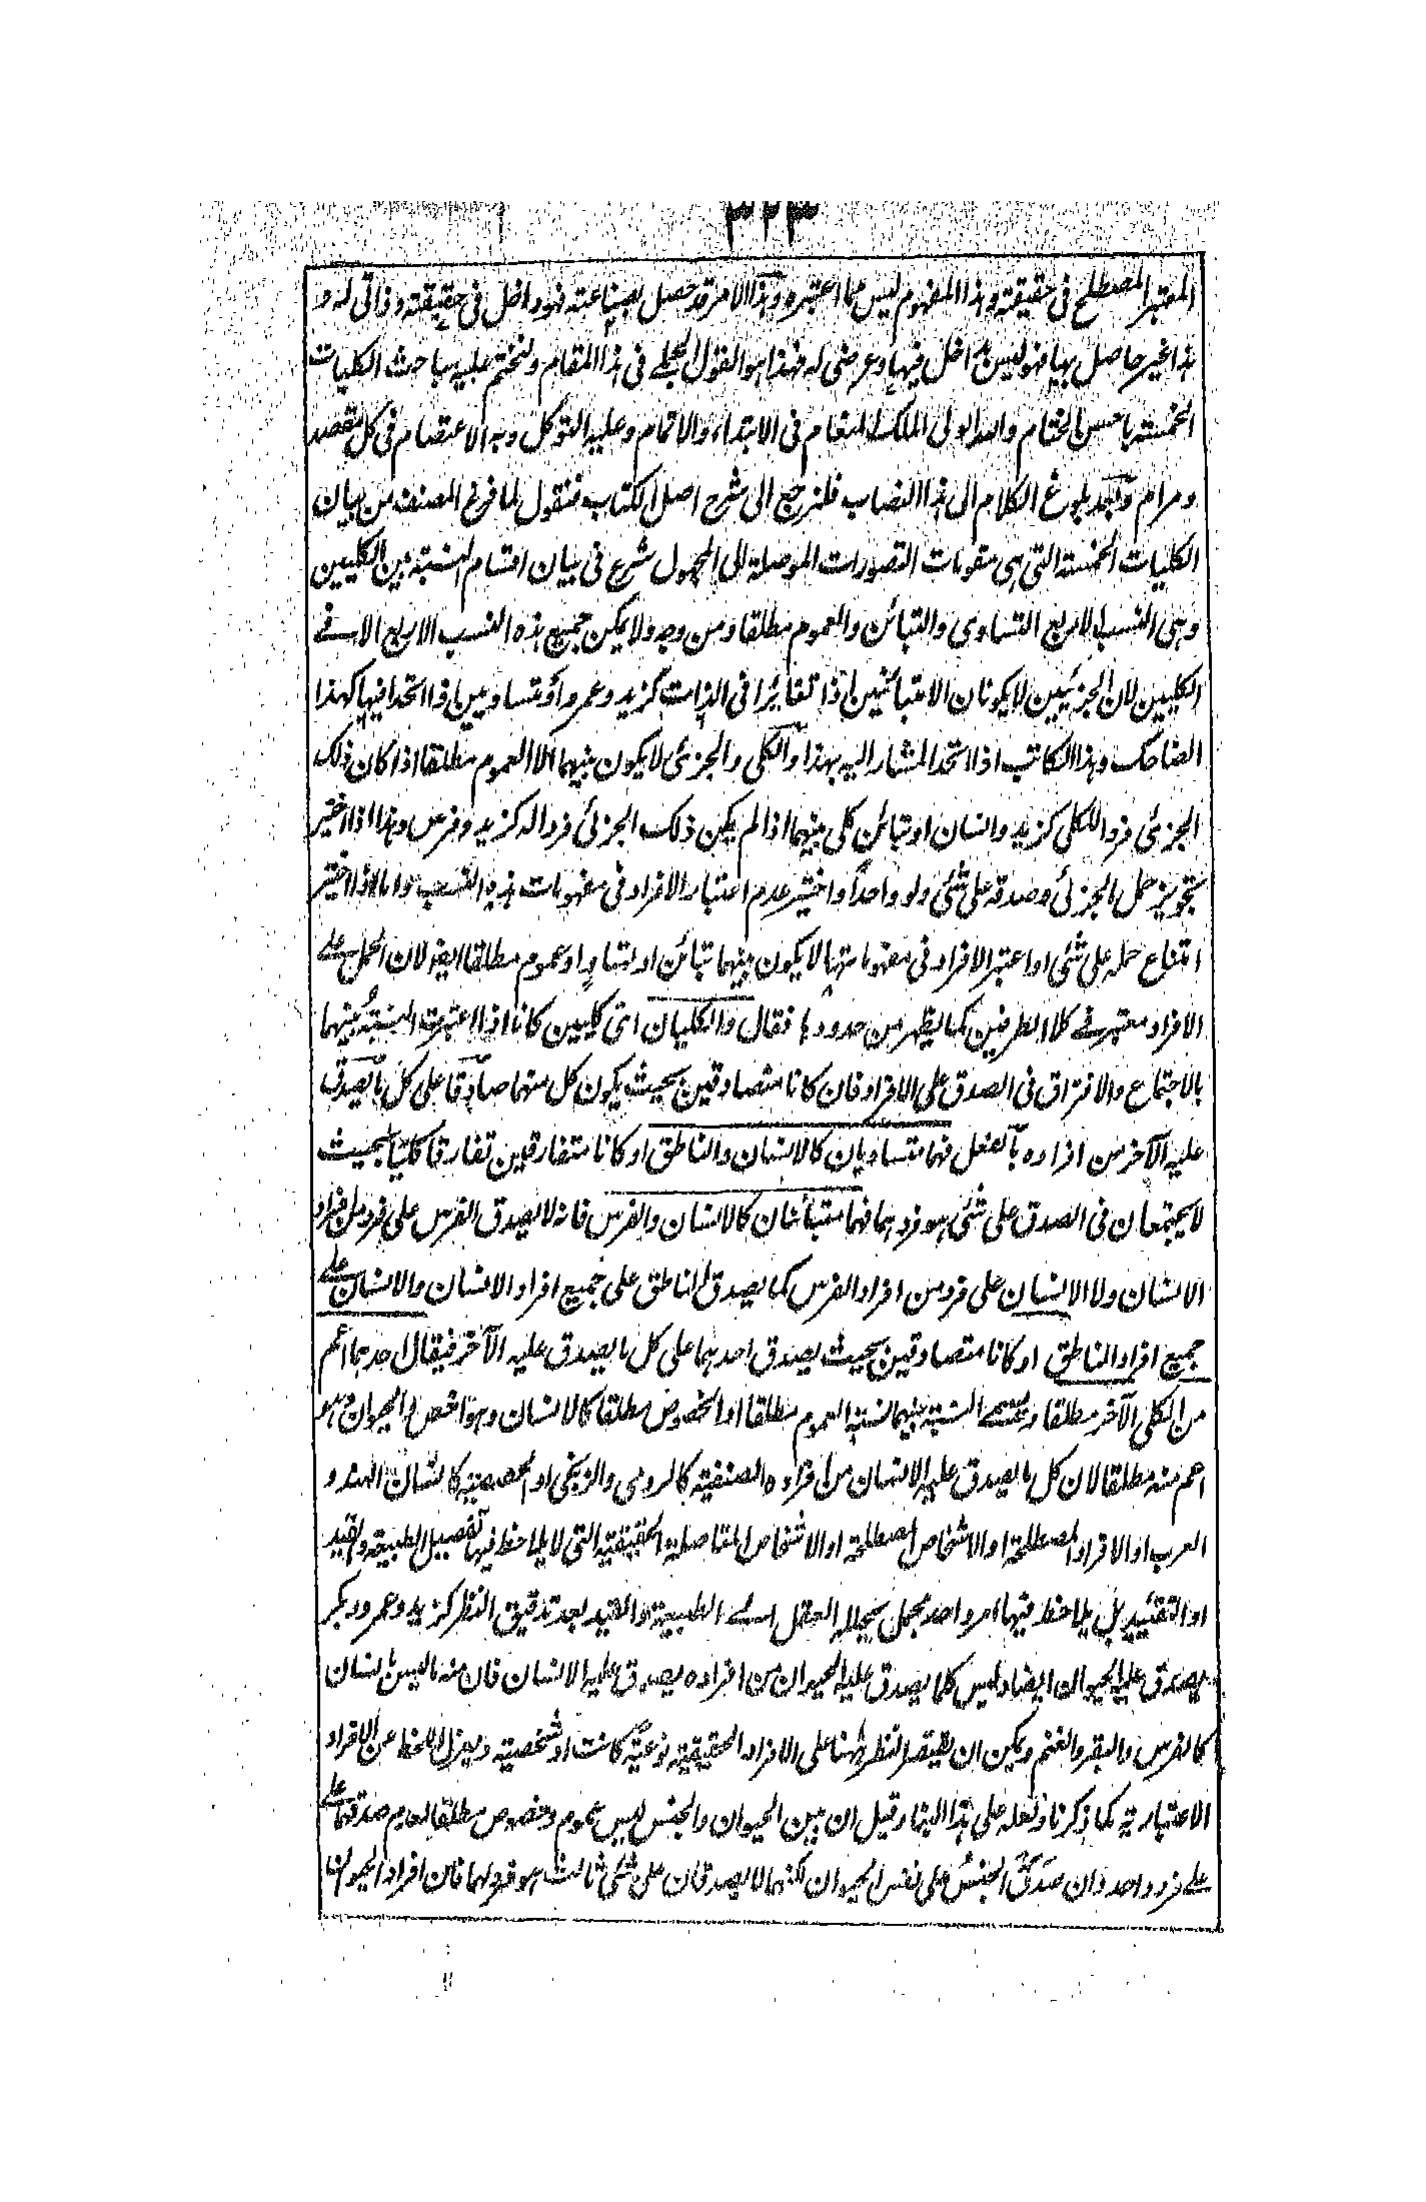 ٣٢٣
المعتبر المصطلح فى حقيقته وهذا المفهوم ليس مما اعتبره وهذا الامر قد حصل بصناعته فهو داخل فى حقيقته وذاتى له و
هذا غير حاصل بها فهو ليس بداخل فيها وعرضى له فهذا هو القول المجلے فى هذا المقام ولنختم عليه مباحث الكليات
الخمسة باحسن الختام والله الولى الملك المنعام فى الابتداء والاتمام وعليه التوكل وبه الاعتصام فى كل مقصد
ومرام وبعد بلوغ الكلام الى هذا النصاب فلنرجع الى شرح اصل الكتاب فنقول لما فرغ المصنف من بيان
الكليات الخمسة التى هى مقومات التصورات الموصلة الى المجهول شرع فى بيان اقسام النسبة بين الكليين
وهى النسب الاربع التساوى والتبائن والعموم مطلقا ومن وجه ولا يمكن جميع هذه النسب الاربع الا فے
الكليين لان الجزئيين لا يكونان الا متبائنين اذا تغائرا فى الذات كزيد وعمرو او متساويين اذا اتحدا فيها كهذا
الضاحك وهذا الكاتب اذا اتحد المشار اليه بهذا والكلى والجزئى لا يكون بينهما الا العموم مطلقا اذا كان ذلك
الجزئى فردا للكلى كزيد وانسان او تبائن كلى بينهما اذا لم يكن ذلك الجزئى فردا له كزيد وفرس وهذا اذا اختير
تجويز حمل الجزئى وصدقه على شئ ولو واحدا واختير عدم اعتبار الافراد فى مفهومات هذه النسب واما اذا اختير
امتناع حمله على شئ او اعتبر الافراد فى مفهوماتها لا يكون بينهما تبائن او تساوٍ او عموم مطلقا ايضا لان الحمل علے
الافراد معتبر فے كلا الطرفين كما يظهر من حدودها فقال والكليان اى كليين كانا اذا اعتبرت النسبة بينهما
بالاجتماع والافتراق فى الصدق على الافراد فان كانا متصادقين بحيث يكون كل منهما صادقا على كل ما يصدق
عليه الآخر من افراده بالفعل فهما متساويان كالانسان والناطق او كانا متفارقين تفارقا كليا بحيث
لا يجتمعان فى الصدق على شئ هو فردهما فهما متبائنان كالانسان والفرس فانه لا يصدق الفرس على فرد من افراد
الانسان ولا الانسان على فرد من افراد الفرس كما يصدق الناطق على جميع افراد الانسان والانسان علے
جميع افراد الناطق او كانا متصادقين بحيث يصدق احدهما على كل ما يصدق عليه الآخر فيقال احدهما اعم
من الكلى الآخر مطلقا وتسمى النسبة بينهما نسبة العموم مطلقا او الخصوص مطلقا كالانسان وهو اخص والحيوان وهو
اعم منه مطلقا لان كل ما يصدق عليه الانسان من افراده الصنفية كالرومى والزنجى او الحصصية كانسان الهند و
العرب او الافراد المصطلحة او الاشخاص المصطلحة او الاشخاص المتاصلة الحقيقية التى لا يلاحظ فيها تفصيل الطبيعة والقيد
او التقئيد بل يلاحظ فيها امر واحد مجمل يحلله العقل الے الطبيعة والقيد بعد تدقيق النظر كزيد وعمرو وبكر
يصدق عليه الحيوان ايضا وليس كلما يصدق عليه الحيوان من افراده يصدق عليه الانسان فان منه ما ليس بانسان
كالفرس والبقر والغنم ويمكن ان يقتصر النظر ههنا على الافراد الحقيقية نوعية كانت او شخصية ويعزل اللحظ عن الافراد
الاعتبارية كما ذكرنا ولعله على هذا البناء قيل ان بين الحيوان والجنس ليس عموم وخصوص مطلقا لعدم صدقهما علے
علے فرد واحد وان صَدَقَ الجنسُ على نفس الحيوان لكنهما لا يصدقان على شئ ثالث هو فرد لهما فان افراد الحيوان